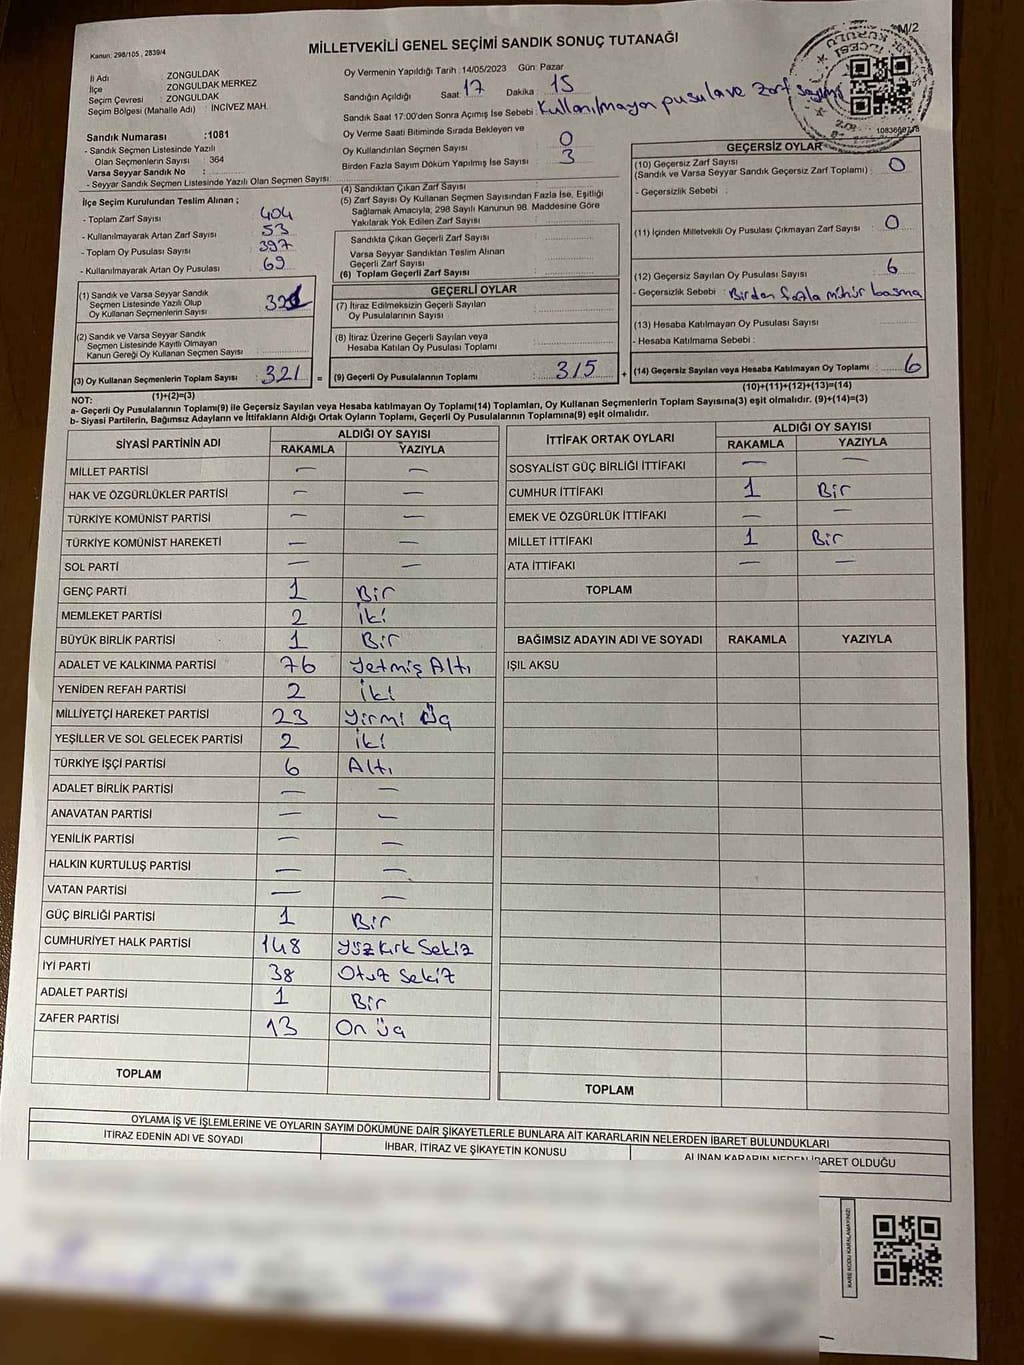 Kanun: 298/105 , 2839/4
MİLLETVEKİLİ GENEL SEÇİMİ SANDIK SONUÇ TUTANAĞI
M/2
İl Adı : ZONGULDAK
İlçe : ZONGULDAK MERKEZ
Seçim Çevresi : ZONGULDAK
Seçim Bölgesi (Mahalle Adı) : İNCİVEZ MAH.
Oy Vermenin Yapıldığı Tarih :14/05/2023 Gün: Pazar
Sandığın Açıldığı Saat: 17 Dakika : 15
Sandık Saat 17:00'den Sonra Açımış İse Sebebi : Kullanılmayan pusula ve zarf sayımı
Oy Verme Saati Bitiminde Sırada Bekleyen ve
Oy Kullandırılan Seçmen Sayısı : 0
Birden Fazla Sayım Döküm Yapılmış İse Sayısı : 3
Sandık Numarası :1081
- Sandık Seçmen Listesinde Yazılı
Olan Seçmenlerin Sayısı : 364
Varsa Seyyar Sandık No :
- Seyyar Sandık Seçmen Listesinde Yazılı Olan Seçmen Sayısı:
İlçe Seçim Kurulundan Teslim Alınan ;
- Toplam Zarf Sayısı : 404
- Kullanılmayarak Artan Zarf Sayısı : 53
- Toplam Oy Pusulası Sayısı : 397
- Kullanılmayarak Artan Oy Pusulası : 69
(1) Sandık ve Varsa Seyyar Sandık
Seçmen Listesinde Yazılı Olup
Oy Kullanan Seçmenlerin Sayısı : 321
(2) Sandık ve Varsa Seyyar Sandık
Seçmen Listesinde Kayıtlı Olmayan
Kanun Gereği Oy Kullanan Seçmen Sayısı :
(3) Oy Kullanan Seçmenlerin Toplam Sayısı : 321
(1)+(2)=(3)
(4) Sandıktan Çıkan Zarf Sayısı :
(5) Zarf Sayısı Oy Kullanan Seçmen Sayısından Fazla İse, Eşitliği
Sağlamak Amacıyla, 298 Sayılı Kanunun 98. Maddesine Göre
Yakılarak Yok Edilen Zarf Sayısı :
Sandıkta Çıkan Geçerli Zarf Sayısı :
Varsa Seyyar Sandıktan Teslim Alınan
Geçerli Zarf Sayısı :
(6) Toplam Geçerli Zarf Sayısı :
GEÇERLİ OYLAR
(7) İtiraz Edilmeksizin Geçerli Sayılan
Oy Pusulalarının Sayısı :
(8) İtiraz Üzerine Geçerli Sayılan veya
Hesaba Katılan Oy Pusulası Toplamı :
= (9) Geçerli Oy Pusulalarının Toplamı : 315 +
GEÇERSİZ OYLAR
(10) Geçersiz Zarf Sayısı
(Sandık ve Varsa Seyyar Sandık Geçersiz Zarf Toplamı) : 0
- Geçersizlik Sebebi :
(11) İçinden Milletvekili Oy Pusulası Çıkmayan Zarf Sayısı : 0
(12) Geçersiz Sayılan Oy Pusulası Sayısı : 6
- Geçersizlik Sebebi : Birden fazla mühür basma
(13) Hesaba Katılmayan Oy Pusulası Sayısı :
- Hesaba Katılmama Sebebi :
(14) Geçersiz Sayılan veya Hesaba Katılmayan Oy Toplamı : 6
(10)+(11)+(12)+(13)=(14)
NOT:
a- Geçerli Oy Pusulalarının Toplamı(9) ile Geçersiz Sayılan veya Hesaba katılmayan Oy Toplamı(14) Toplamları, Oy Kullanan Seçmenlerin Toplam Sayısına(3) eşit olmalıdır. (9)+(14)=(3)
b- Siyasi Partilerin, Bağımsız Adayların ve İttifakların Aldığı Ortak Oyların Toplamı, Geçerli Oy Pusulalarının Toplamına(9) eşit olmalıdır.
SİYASİ PARTİNİN ADI ALDIĞI OY SAYISI
RAKAMLA YAZIYLA
MİLLET PARTİSİ — —
HAK VE ÖZGÜRLÜKLER PARTİSİ — —
TÜRKİYE KOMÜNİST PARTİSİ — —
TÜRKİYE KOMÜNİST HAREKETİ — —
SOL PARTİ — —
GENÇ PARTİ 1 Bir
MEMLEKET PARTİSİ 2 İki
BÜYÜK BİRLİK PARTİSİ 1 Bir
ADALET VE KALKINMA PARTİSİ 76 Yetmiş Altı
YENİDEN REFAH PARTİSİ 2 İki
MİLLİYETÇİ HAREKET PARTİSİ 23 Yirmi Üç
YEŞİLLER VE SOL GELECEK PARTİSİ 2 İki
TÜRKİYE İŞÇİ PARTİSİ 6 Altı
ADALET BİRLİK PARTİSİ — —
ANAVATAN PARTİSİ — —
YENİLİK PARTİSİ — —
HALKIN KURTULUŞ PARTİSİ — —
VATAN PARTİSİ — —
GÜÇ BİRLİĞİ PARTİSİ 1 Bir
CUMHURİYET HALK PARTİSİ 148 Yüz Kırk Sekiz
İYİ PARTİ 38 Otuz Sekiz
ADALET PARTİSİ 1 Bir
ZAFER PARTİSİ 13 On Üç
TOPLAM
İTTİFAK ORTAK OYLARI ALDIĞI OY SAYISI
RAKAMLA YAZIYLA
SOSYALİST GÜÇ BİRLİĞİ İTTİFAKI — —
CUMHUR İTTİFAKI 1 Bir
EMEK VE ÖZGÜRLÜK İTTİFAKI — —
MİLLET İTTİFAKI 1 Bir
ATA İTTİFAKI — —
TOPLAM
BAĞIMSIZ ADAYIN ADI VE SOYADI RAKAMLA YAZIYLA
IŞIL AKSU
TOPLAM
OYLAMA İŞ VE İŞLEMLERİNE VE OYLARIN SAYIM DÖKÜMÜNE DAİR ŞİKAYETLERLE BUNLARA AİT KARARLARIN NELERDEN İBARET BULUNDUKLARI
İTİRAZ EDENİN ADI VE SOYADI
İHBAR, İTİRAZ VE ŞİKAYETİN KONUSU
ALINAN KARARIN NEDEN İBARET OLDUĞU
KARE KODU KARALAMAYINIZ!